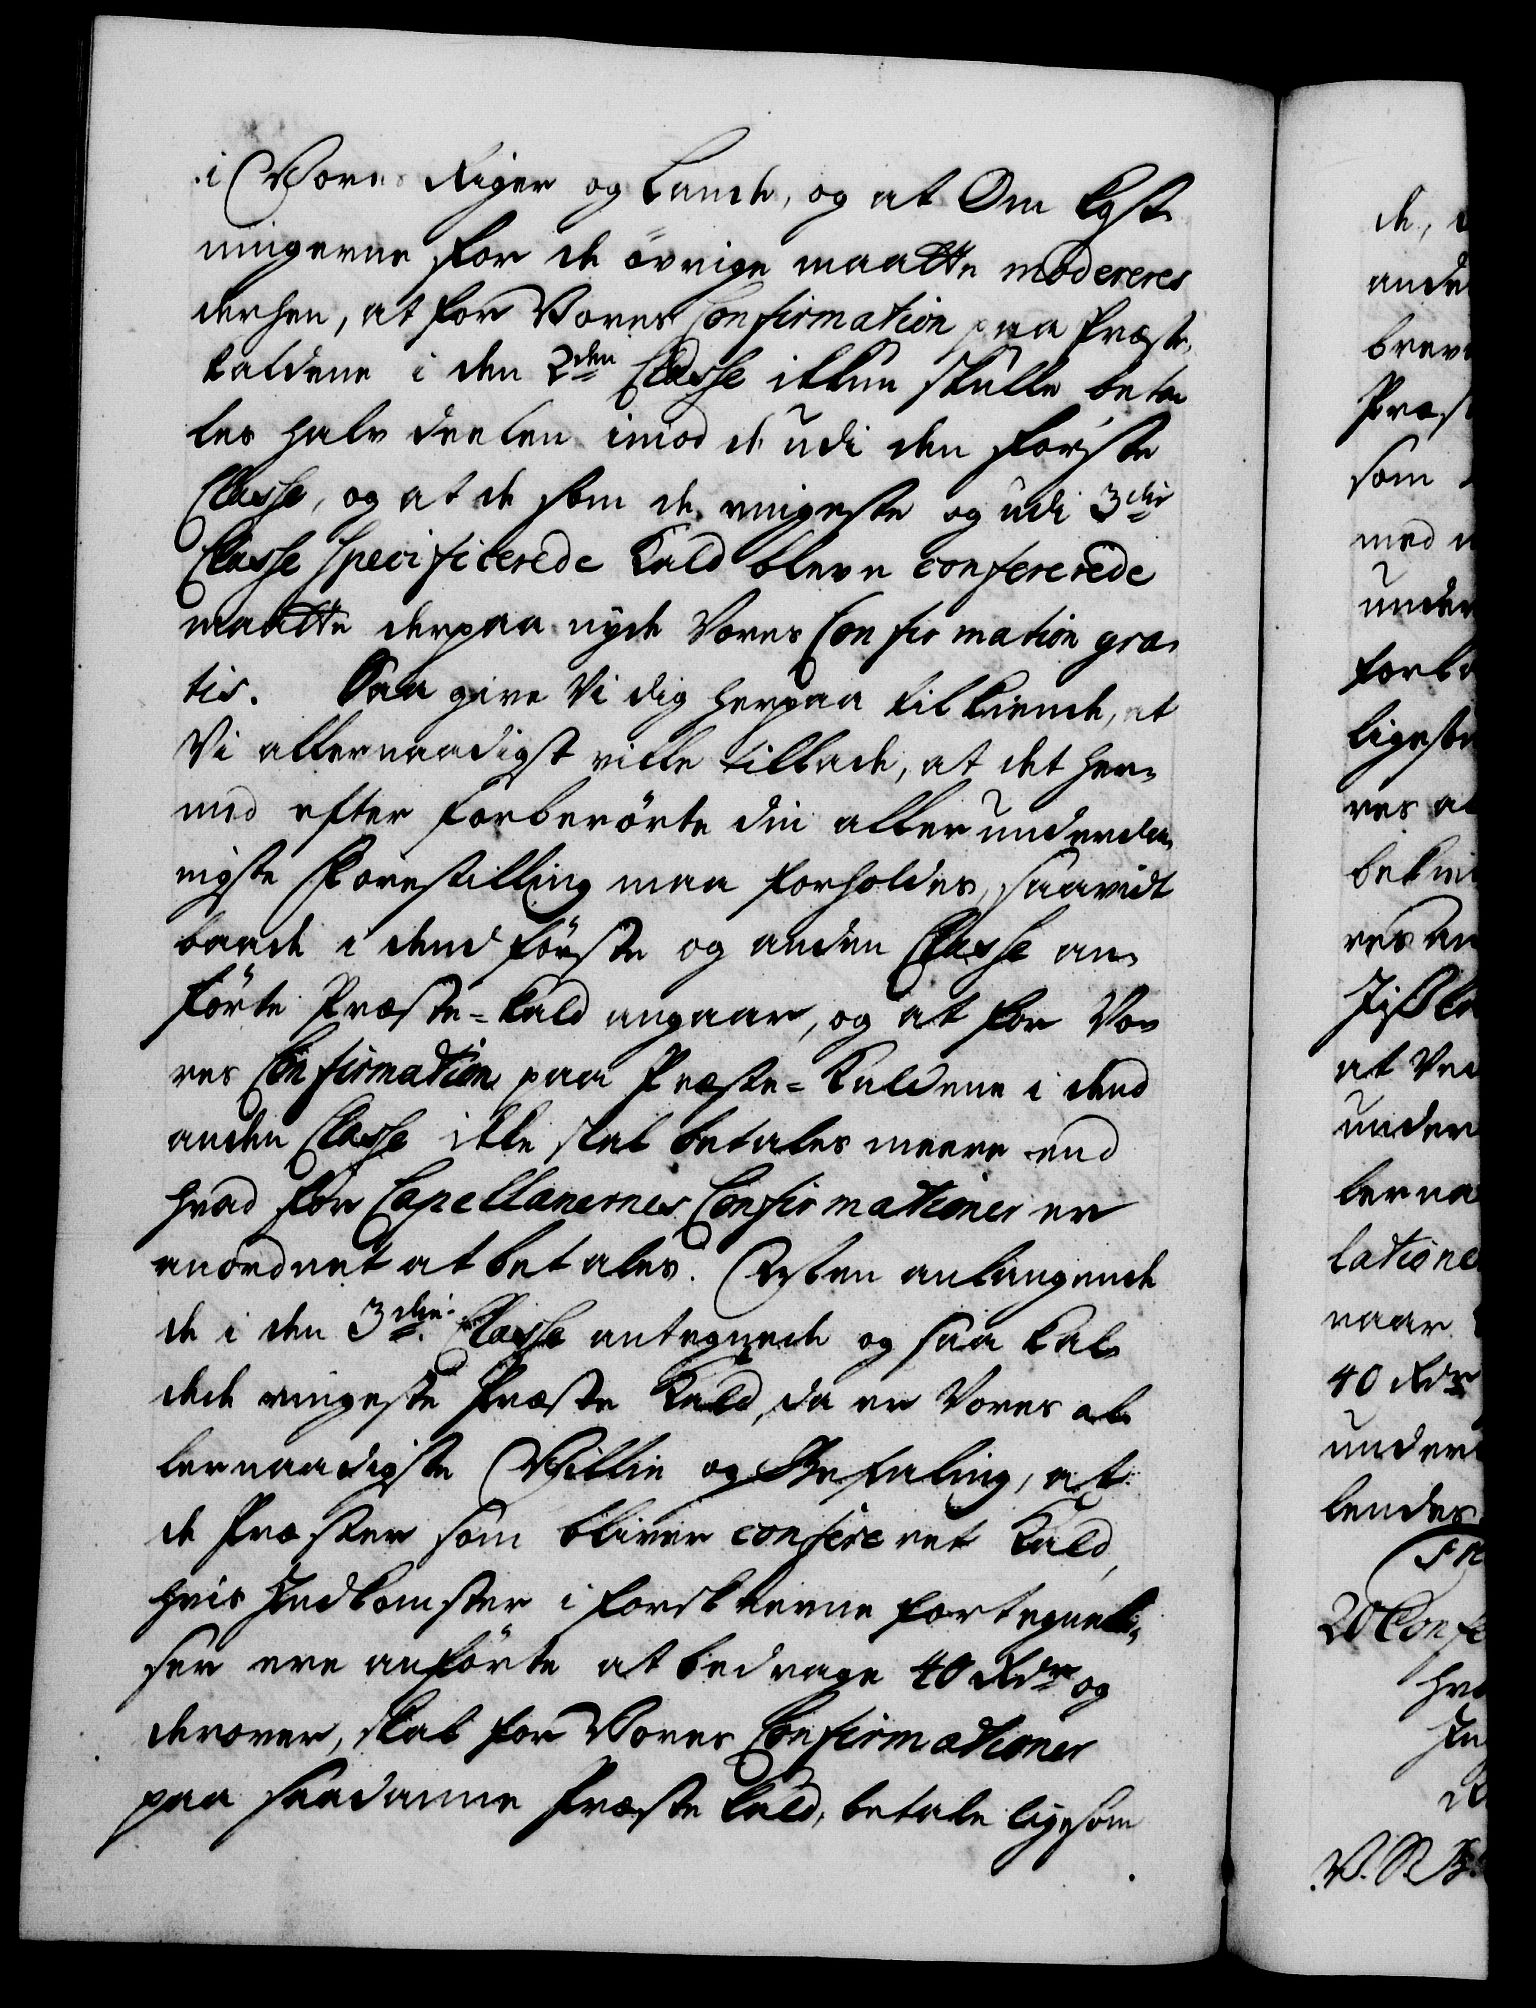 i Vores Riger og Lande, og at Om kost-
ningerne for de övrige maatte modereres
derhen, at for Vores Confirmation paa Præste-
kaldene i den 2den Classe ikkun skulle beta-
les halv deelen imod de udi den förste
Classe, og at de som de ringeste og udi 3die
Classe specificerede Kald bleve confererede
maatte derpaa nyde Vores Confirmation gra-
tis. Saa give Vi dig herpaa tilkiende, at
Vi allernaadigst ville tillade, at det her-
med efter forberörte din allerunderda-
nigste Forestilling maa forholdes, saavidt
baade i dend förste og anden Classe an-
förte Præste-Kald angaar, og at for Vo-
res Confirmation paa Præste-Kaldene i dend
anden Classe ikke skal betales meere end
hvad for Capellanernes Confirmationer er
anordnet at betales. Men anlangende
de i den 3die Classe antegnede og saa kal-
dede ringeste Præste Kald, da er Vores al-
lernaadigste Villie og Befaling, at
de Præster som bliver confereret Kald,
hvis Indkomster i forskrevne fortegnel-
ser ere anförte at bedrage 40 Rdr og
derover, skal for Vores Confirmationer
paa saadanne Præste Kald, betale ligesom